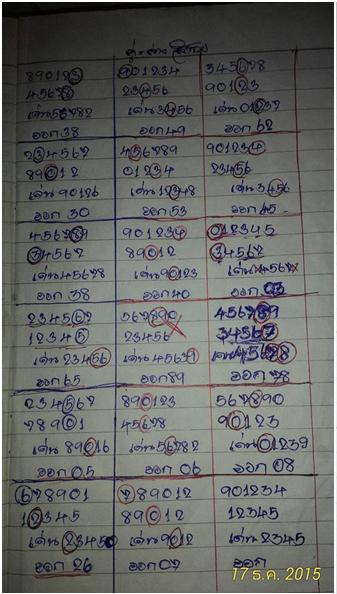 890123
45678
เด่น 56782
ออก 38
234567
89012
เด่น 90126
ออก 30
456789
34567
เด่น 45678
ออก 38
234567
12345
เด่น 23456
ออก 65
234567
78901
เด่น 89016
ออก 05
678901
12345
เด่น 23450
ออก 26
901234
23456
เด่น 3456
ออก 49
456789
01234
เด่น 12348
ออก 53
901234
89012
เด่น 90123
ออก 40
567890
23456
เด่น 45639
ออก 89
890123
45678
เด่น 56782
ออก 06
789012
89012
เด่น 9012
ออก 07
345678
90123
เด่น 01237
ออก 62
901234
23456
เด่น 3456
ออก 45
012345
34567
เด่น 4567
ออก 03
456789
34567
เด่น 45678
ออก 78
567890
90123
เด่น 01239
ออก 08
901234
12345
เด่น 2345
ออก
17 ธ.ค. 2015